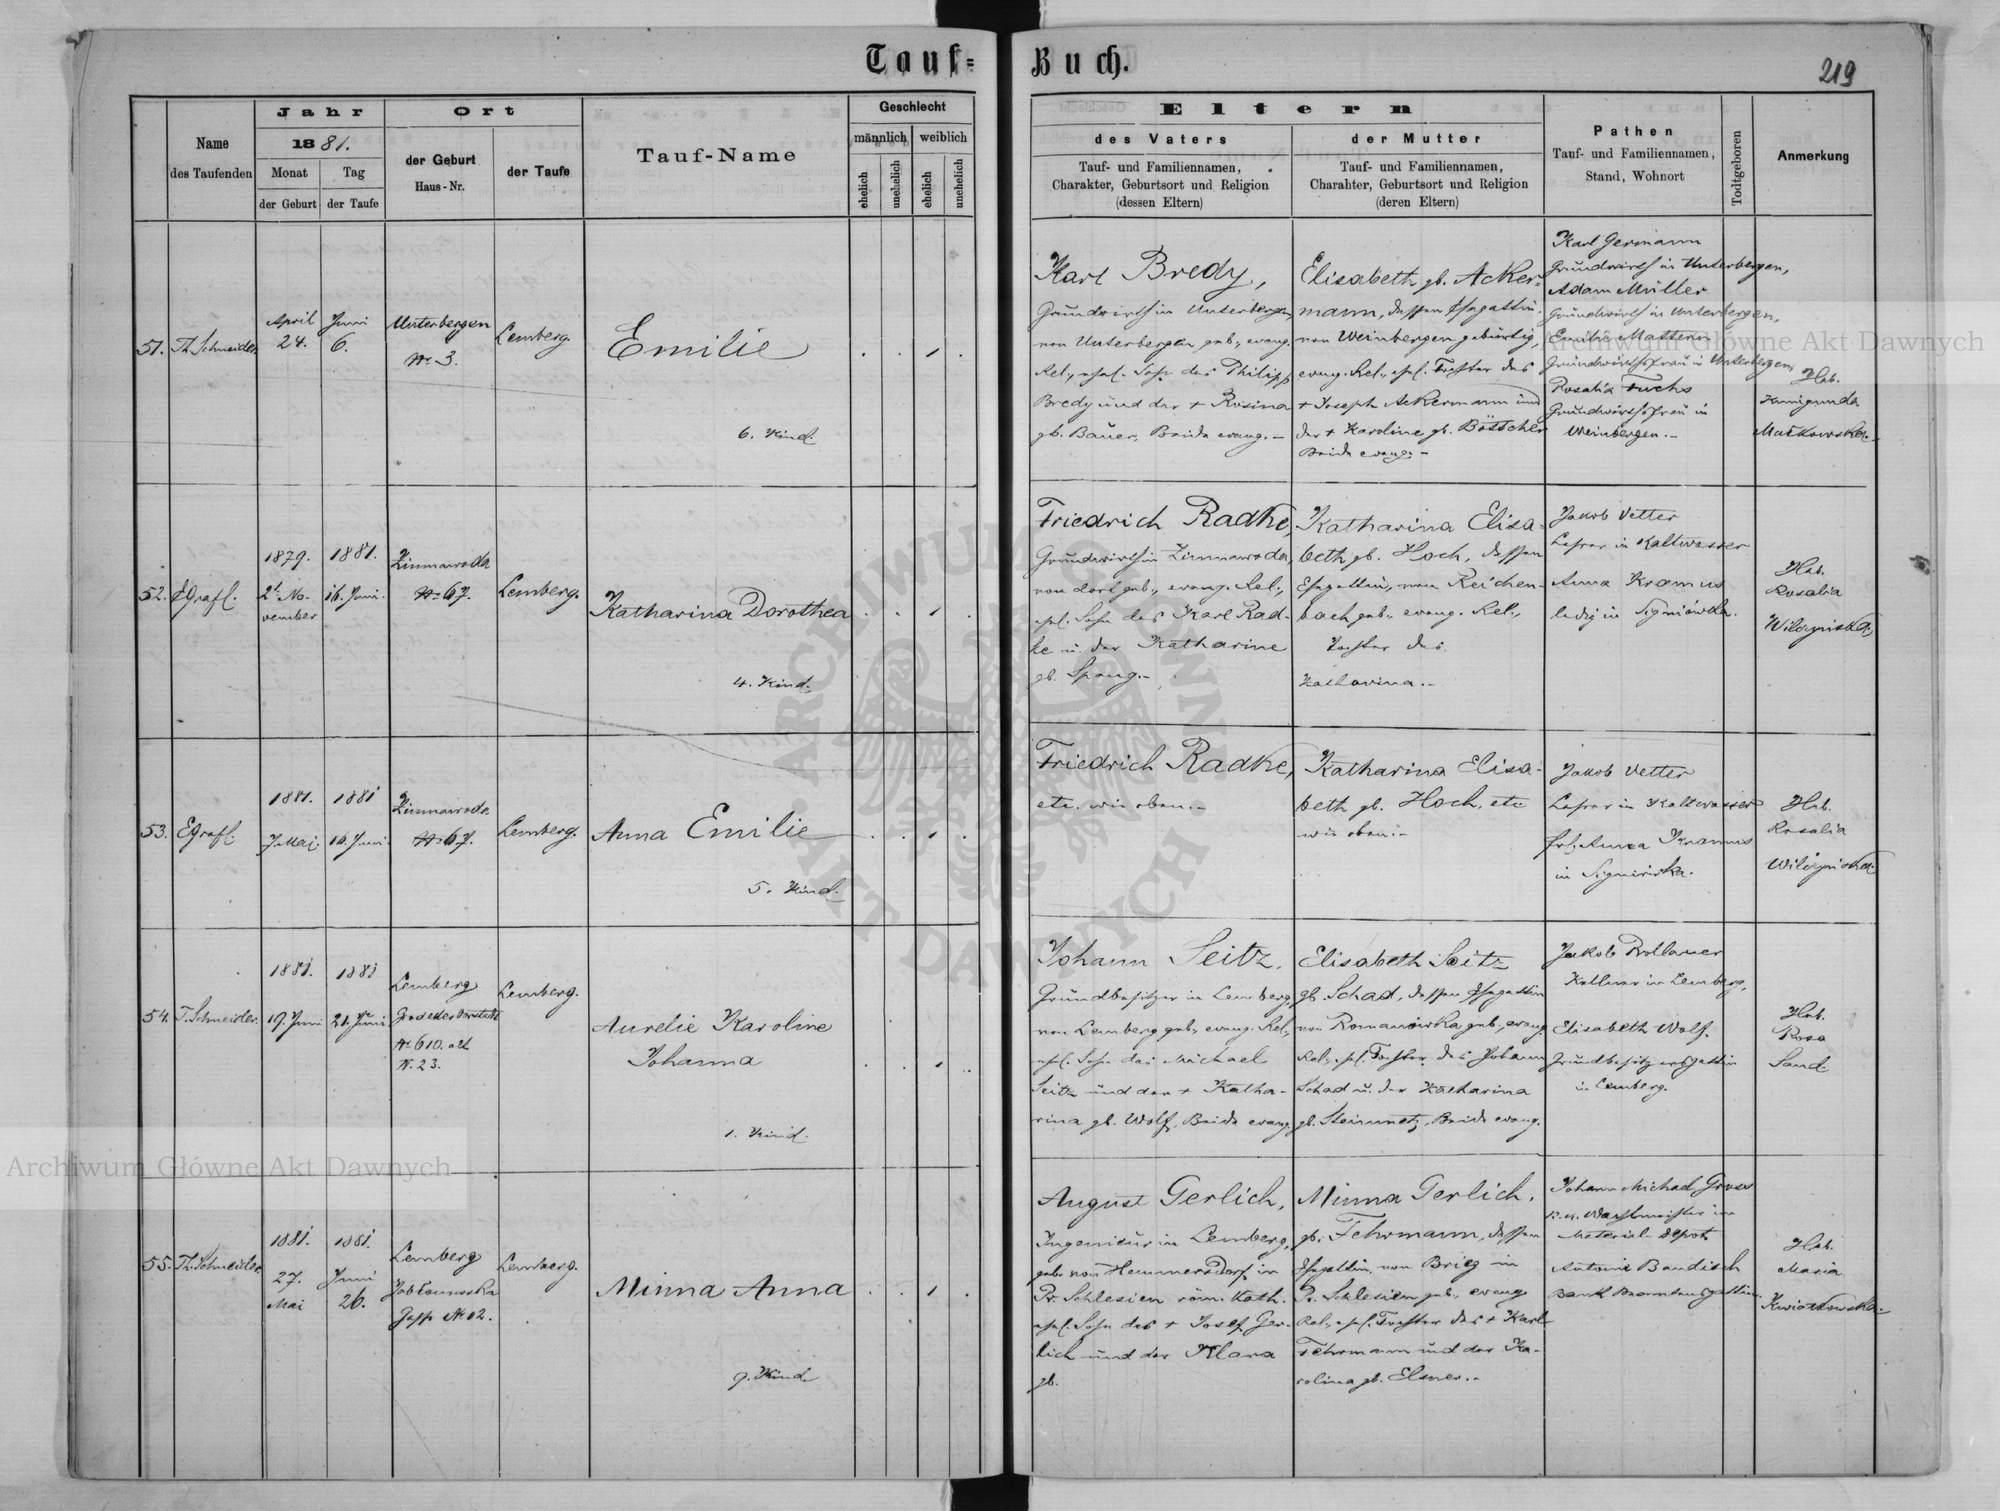 Tauf=
Buch.
219
Name
des Taufenden
Jahr
1881.
Monat
der Geburt
Tag
der Taufe
Ort
der Geburt
Haus-Nr.
der Taufe
Tauf-Name
Geschlecht
männlich
weiblich
ehelich
unehelich
ehelich
unehelich
Eltern
des Vaters
Tauf- und Familiennamen,
Charakter, Geburtsort und Religion
(dessen Eltern)
der Mutter
Tauf- und Familiennamen,
Charakter, Geburtsort und Religion
(deren Eltern)
Pathen
Tauf- und Familiennamen,
Stand, Wohnort
Todtgeboren
Anmerkung
51.
Th. Schneider
April
24.
Juni
6.
Unterbergen
Nr 3.
Lemberg.
Emilie
6. Kind.
Karl Bredy,
Grundwirth in Unterbergen,
von Unterbergen geb., evang.
Rel., ehel. Sohn des Philipp
Bredy und der + Rosina
gb. Bauer, Beide evang.-
Elisabeth gb. Acker-
mann, dessen Ehegattin,
von Weinbergen gebürtig,
evang. Rel., ehel. Tochter des
+ Joseph Ackermann und
der + Karoline gb. Böttcher
Beide evang.-
Karl Germann
Grundwirth in Unterbergen,
Adam Müller
Grundwirth in Unterbergen,
Emilie Mattern
Grundwirthsfrau in Unterbergen,
Rosalia Fuchs
Grundwirthsfrau in
Weinbergen.-
Heb.
Kunigunda
Mačkowska.
52.
Egrafl.
1879.
2t No-
vember
1881.
16. Juni.
Zimnawoda
Nr 67.
Lemberg.
Katharina Dorothea
4. Kind.
Friedrich Radke,
Grundwirth in Zimnawoda,
von dort geb., evang. Rel.,
ehel. Sohn des Karl Rad-
ke u. der Katharine
gb. Spang.-
Katharina Elisa-
beth gb. Hoch, dessen
Ehegattin, von Reichen-
bach geb., evang. Rel.,
Tochter des
Katharina.-
Jakob Vetter
Lehrer in Kaltwasser
Anna Kramus
ledig in Signiówka.
Heb.
Rosalia
Wilczyńska
53.
Egrafl.
1881.
Mai.
1881
16. Juni.
Zimnawoda.
Nr 67.
Lemberg.
Anna Emilie
5. Kind.
Friedrich Radke,
etc. wie oben.-
Katharina Elisa-
beth gb. Hoch, etc
wie oben.-
Jakob Vetter
Lehrer in Kaltwasser
Anna Kramus
in Signiówka.
Heb.
Rosalia
Wilczyńska
54.
T. Schneider.
1881.
19. Juni
1881
21. Juni
Lemberg
Grodeker Vorstadt
Nr 610. alt
N. 23.
Lemberg.
Aurelie Karoline
Johanna
1. Kind.
Johann Seitz,
Grundbesitzer in Lemberg,
von Lemberg geb., evang. Rel.,
ehel. Sohn des Michael
Seitz und der + Katha-
rina gb. Wolf, Beide evang.
Elisabeth Seitz
gb. Schad, dessen Ehegattin
von Romanówka geb., evang.
Rel., ehel. Tochter des Johann
Schad u. der Katharina
gb. Steinmetz, Beide evang.
Jakob Bollauer
Kellner in Lemberg,
Elisabeth Wolf.
Grundbesitzersgattin
in Lemberg.
Heb.
Rosa
Sand.
55.
Th. Schneider.
1881.
27.
Mai
1881.
Juni
26.
Lemberg
Jabłonowska
Gasse Nr 12.
Lemberg.
Minna Anna
9. Kind.
August Gerlich,
Ingenieur in Lemberg,
geb. von Hennersdorf in
Pr. Schlesien röm. kath.
ehel. Sohn des + Josef Ger-
lich und der Klara
gb.
Minna Gerlich,
gb. Fehrmann, dessen
Ehegattin, von Brieg in
Pr. Schlesien geb., evang.
Rel., ehel. Tochter des + Karl
Fehrmann und der Ka-
rolina gb. Elsner.-
Johann Michael Gross
k. k. Wachtmeister im
Material depot
Antonie Baudisch
Bank Beamtensgattin.
Heb.
Maria
Kwiatkowska.
Archiwum Główne Akt Dawnych
Archiwum Główne Akt Dawnych
ARCHIWUM GŁÓWNE AKT DAWNYCH